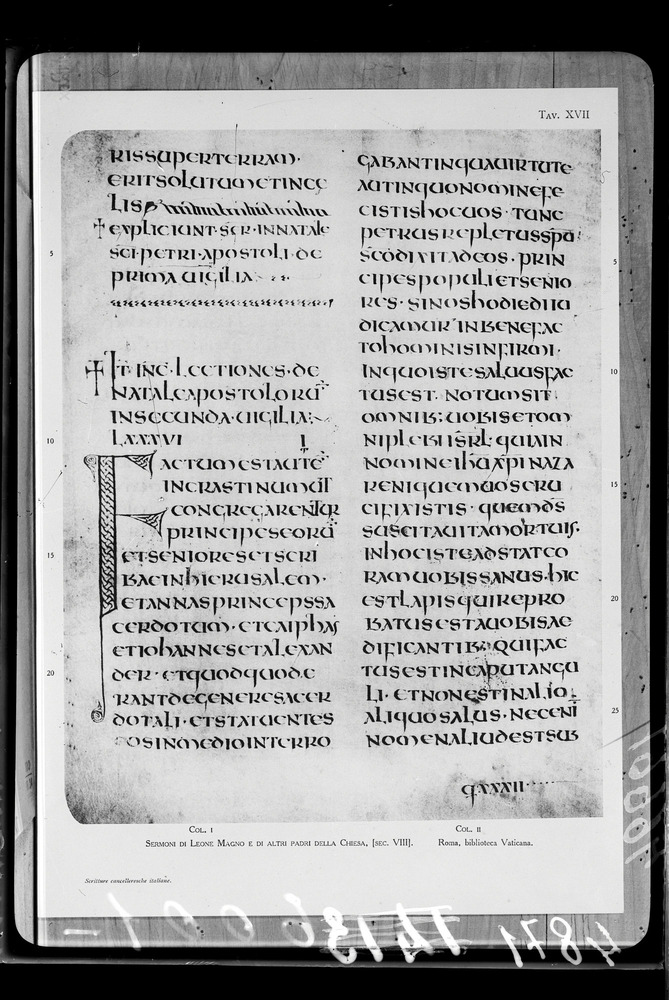 TAV. XVII
RISSUPERTERRAM·
ERITSOLUTUMETINCE
LIS
† EXPLICIUNT·SER·INNATALE
SCI·PETRI·APOSTOLI·DE
5
PRIMA UIGILIA
† IT·INC·LECTIONES·DE
NATALEAPOSTOLORŪ
INSECUNDA·UIGILIA
10
LXXXVI I
FACTUMESTAUTĒ
INCRASTINUM
CONGREGARENTUR
PRINCIPESEORŪ
15
ETSENIORESETSCRI
BAEINHIERUSALEM·
ETANNASPRINCEPSSA
CERDOTUM·ETCAIPHAS
ETIOHANNESETALEXAN
20
DER·ETQUODQUODE
RANTDEGENERESACER
DOTALI·ETSTATUENTES
EOSINMEDIOINTERRO
GABANTINQUAUIRTUTE
AUTINQUONOMINEFE
CISTISHOCUOS·TUNC
PETRUSREPLETUSSPŪ
5
SCŌDIXITADEOS·PRIN
CIPESPOPULIETSENIO
RES·SINOSHODIEDIIU
DICAMURINBENEFAC
TOHOMINISINFIRMI·
10
INQUOISTESALUUSFAC
TUSEST·NOTUMSIT
OMNIB;UOBISETOM
NIPLEBIISRL·QUIAIN
NOMINEIHŪXPINAZA
15
RENIQUEMUOSCRU
CIFIXISTIS·QUEMDS
SUSCITAUITAMORTUIS·
INHOCISTEADSTATCO
RAMUOBISSANUS·HIC
20
ESTLAPISQUIREPRO
BATUSESTAUOBISAE
DIFICANTIB;QUIFAC
TUSESTINCAPUTANGU
LI·ETNONESTINALIO
25
ALIQUOSALUS·NECENĪ
NOMENALIUDESTSUB
QXXXII
COL. I
COL. II
SERMONI DI LEONE MAGNO E DI ALTRI PADRI DELLA CHIESA, [SEC. VIII].
Roma, biblioteca Vaticana.
Scritture cancelleresche italiane.
4871